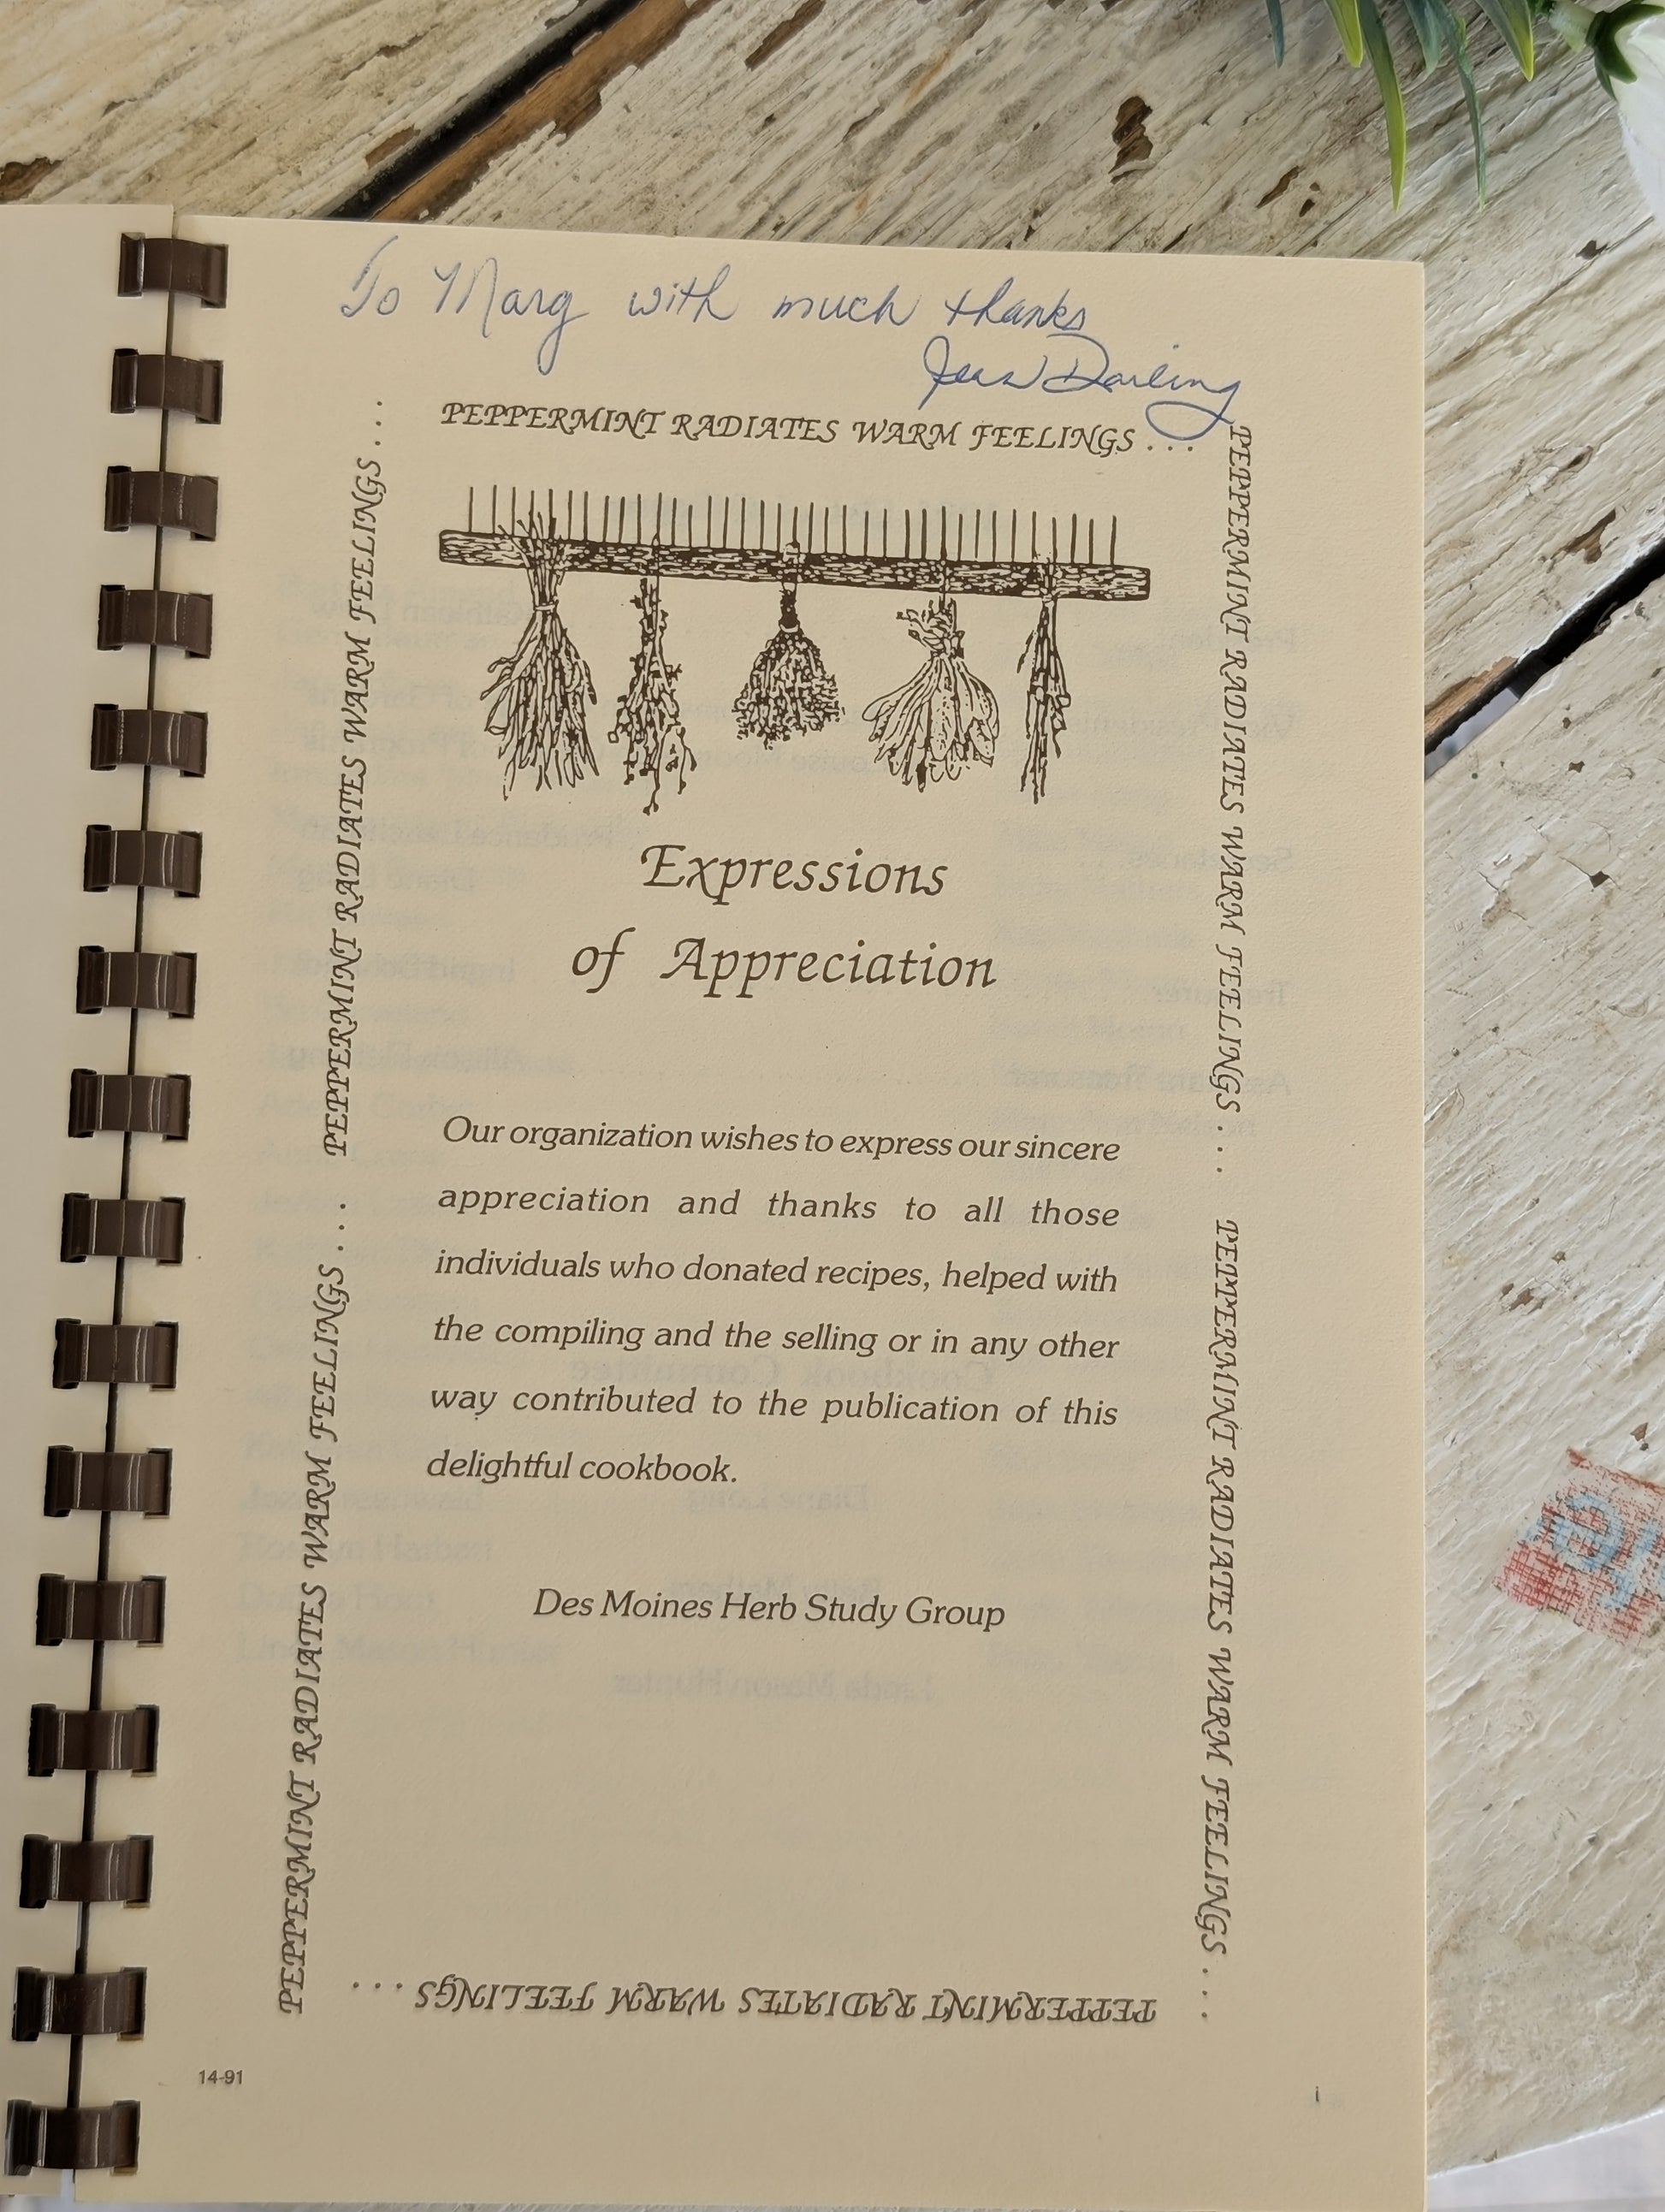 To Marg with much thanks
Jean Darling
PEPPERMINT RADIATES WARM FEELINGS...
PEPPERMINT RADIATES WARM FEELINGS...
PEPPERMINT RADIATES WARM FEELINGS...
Expressions
of Appreciation
Our organization wishes to express our sincere
appreciation and thanks to all those
individuals who donated recipes, helped with
the compiling and the selling or in any other
way contributed to the publication of this
delightful cookbook.
Des Moines Herb Study Group
PEPPERMINT RADIATES WARM FEELINGS...
PEPPERMINT RADIATES WARM FEELINGS...
PEPPERMINT RADIATES WARM FEELINGS...
14-91
i